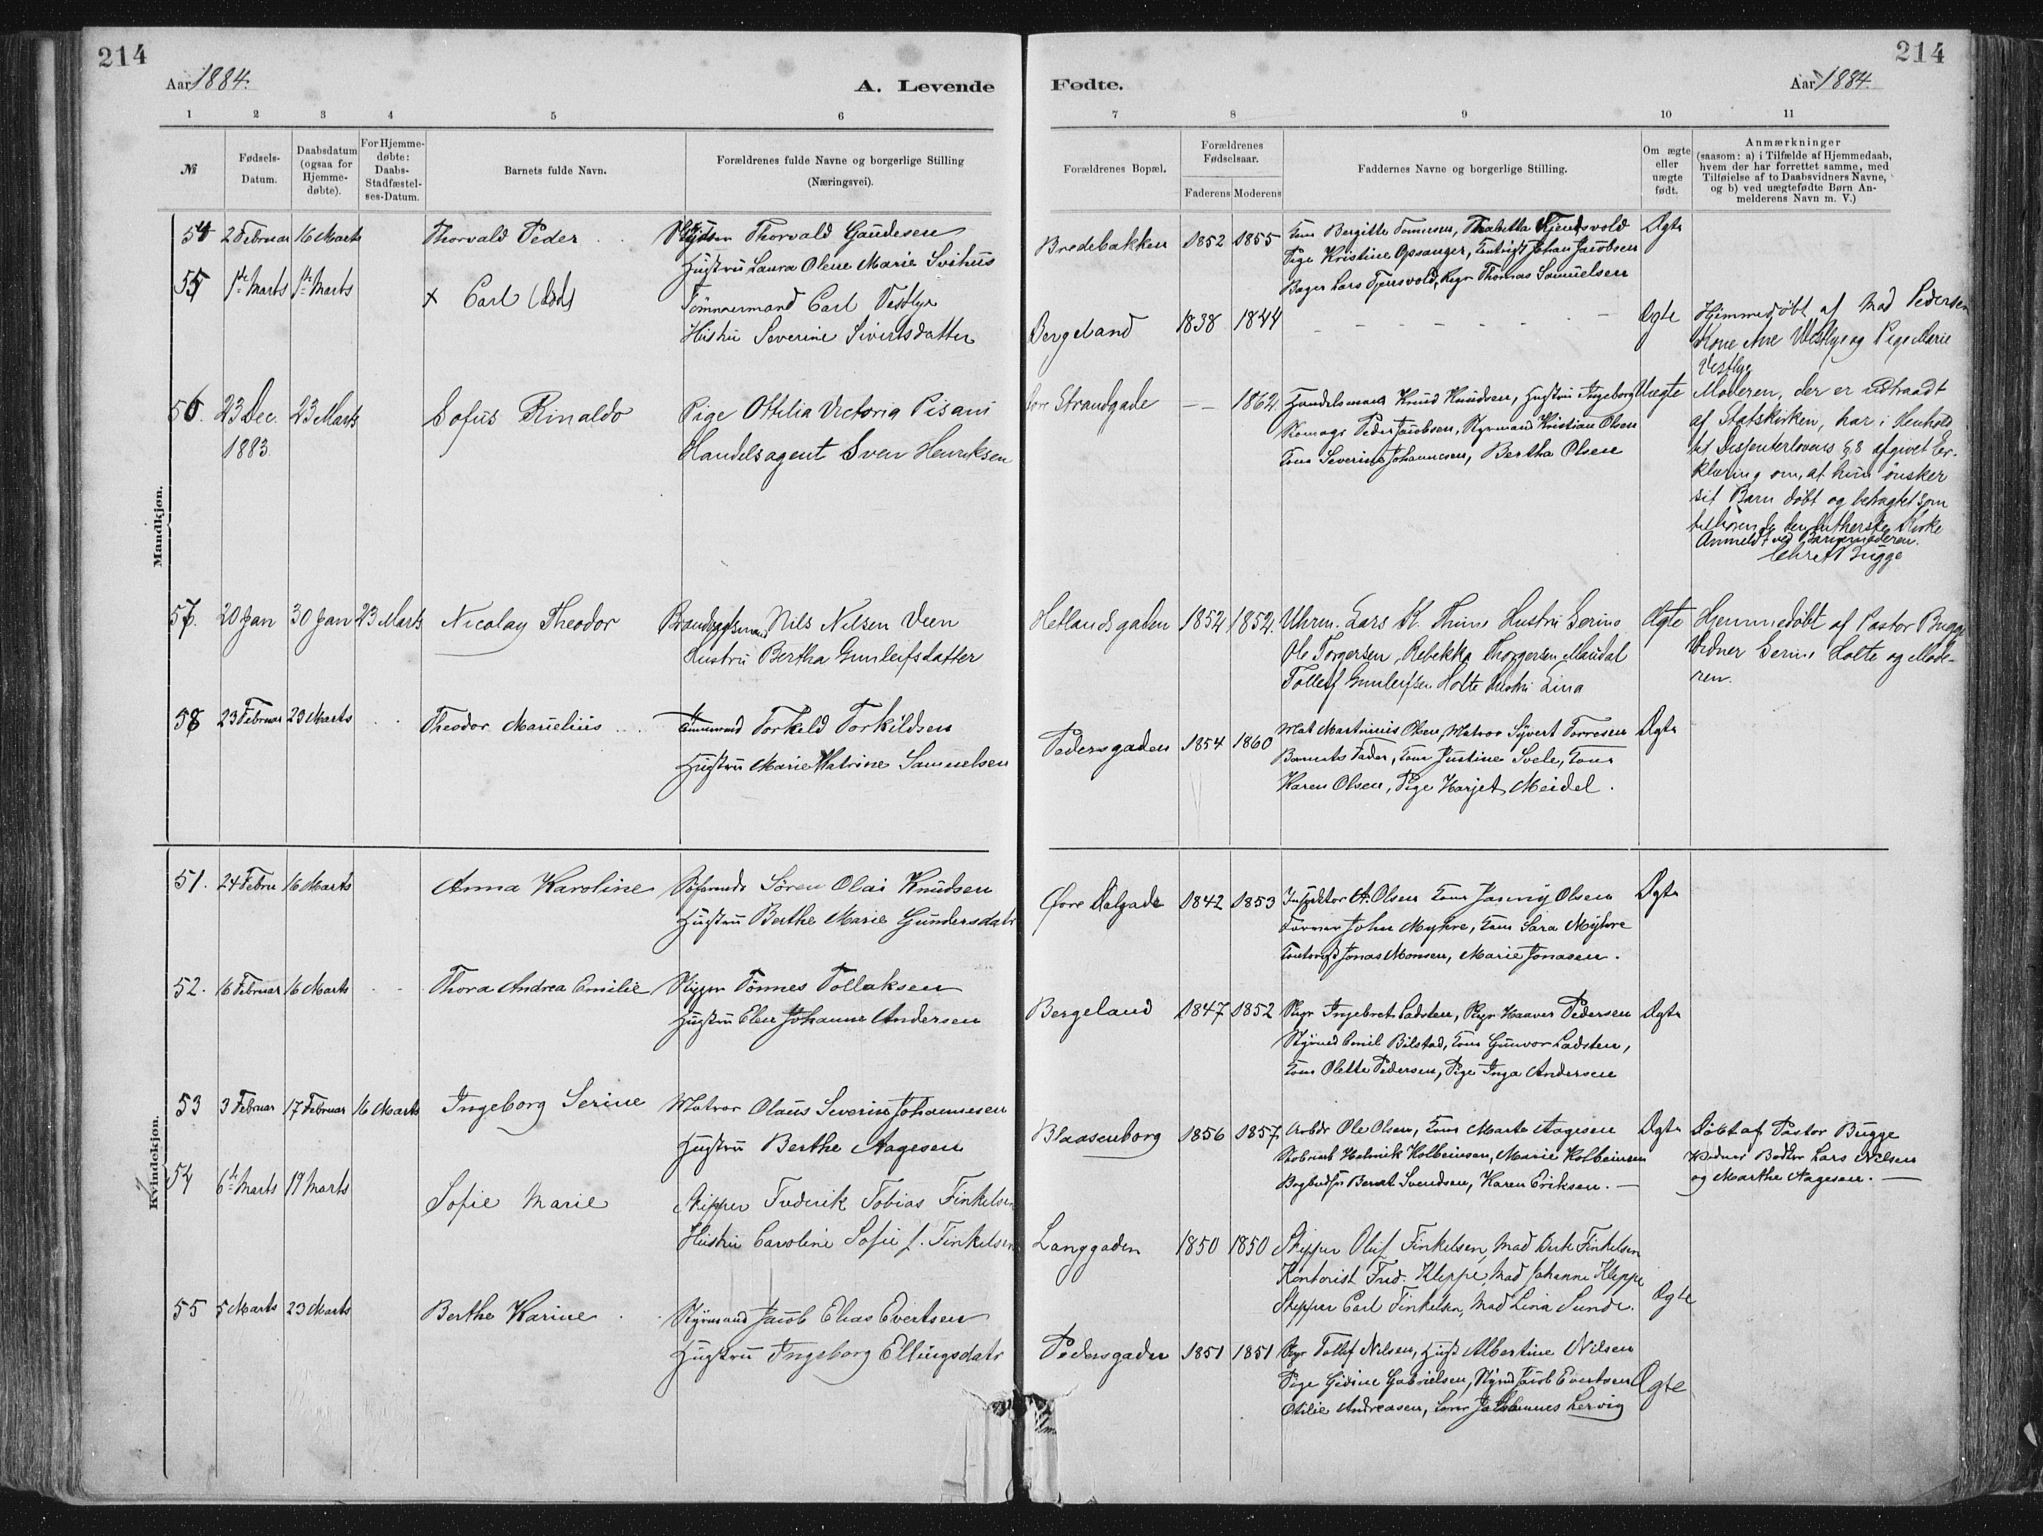 214
214
Aar 1884.
A. Levende
Fødte.
Aar 1884.
1 2 3 4 5 6 7 8 9 10 11
№
Fødsels-
Datum.
Daabsdatum
(ogsaa for
Hjemme-
døbte).
For Hjemme-
døbte:
Daabs-
Stadfæstel-
ses-Datum.
Barnets fulde Navn.
Forældrenes fulde Navne og borgerlige Stilling
(Næringsvei).
Forældrenes Bopæl.
Forældrenes
Fødselsaar.
Faderens Moderens
Faddernes Navne og borgerlige Stilling.
Om ægte
eller
uægte
født.
Anmærkninger
(saasom: a) i Tilfælde af Hjemmedaab,
hvem der har forrettet samme, med
Tilføielse af to Daabsvidners Navne,
og b) ved uægtefødte Børn An-
melderens Navn m. V.)
Mandkjøn.
54 2 Februar 16 Marts
Thorvald Peder
Thorvald Gaudesen
Hustru Laura Olene Marie Svihus
Bredebakken 1852 1855
Kone Bergitte Tonnesen,
Pige Kristine Opsanger, Johan Jacobsen
Bager Lars Tjersvold, Thomas Samuelsen
Ægte
55 1ste Marts 1ste Marts
x Carl (død)
Tømmermand Carl Vestlye
Hustru Severine Sivertsdatter
Bergeland 1838 1844
Ægte
Hjemmedøbt af Mad Pedersen
Kone Ane Vestlye og Pige Marie
Vestlye
56. 23 Dec. 23 Marts
1883
Sofus Rinaldo
Pige Ottilia Victoria Pisani
Handelsagent Sven Henriksen
Strandgade – – 1862.
Handelsmand Knud Knudsen, Hustru Ingeborg
Peder Jacobsen, Styrmand Kristian Olsen
Kone Severine Johannesen, Bertha Olsen
Uægte
Moderen, der er udtraadt
af Statskirken, har i Henhold
til Dissenterlovens § 8 afgivet Er-
klæring om, at hun ønsker
sit Barn døbt og betragtet som
tilhørende den lutherske Kirke
Anmeldt ved Barnemoderen.
Bugge
57. 20 Jan 30 Jan 23 Marts
Nicolay Theodor
Nils Nilsen Veen
Hustru Bertha Gunleifsdatter
Hetlandsgaden 1852 1852.
Uhrm. Lars K. Thime Hustru Serine
Ole Torgersen, Rebekka Thorgersen Maudal
Tollef Gunleifsen Holte Hustru Lina
Ægte
Hjemmedøbt af Pastor Bugge
Vidner Serine Holte og Mode-
ren.
58 23 Februar 23 Marts
Theodor Marielius
Torkeld Torkildsen
Hustru Marie Katrine Samuelsen
Pedersgaden 1854 1860
Mat Martinius Olsen, Matros Syvert Torresen
Barnets Fader, Kone Justine Svele, Kone
Karen Olsen, Pige Marjet Meidel.
Ægte
Kvindekjøn.
51. 24 Febru 16 Marts
Anna Karoline
Søren Olai Knudsen
Hustru Berthe Marie Gundersdatr
Øvre Dalgade 1842 1853
Inspektør A. Olsen Kone Janny Olsen
John Myhre, Kone Sara Myhre
Jonas Monsen, Marie Jonasen.
Ægte
52. 16 Februar 16 Marts
Thora Andrea Emilie
Skipper Tønnes Tollaksen
Hustru Elen Johanne Andersen
Bergeland 1847 1852
Skpr Ingebret Ladsten, Skpr Haaver Pedersen
Styrmd Emil Bilstad, Kone Gunvor Ladsten,
Kone Olette Pedersen, Pige Inga Andersen
Ægte
53 3 Februar 17 Februar 16 Marts
Ingeborg Serine
Matros Olaus Severin Johannesen
Hustru Berthe Aagesen
Blaasenborg 1856 1857
Arbdr Ole Olsen, Kone Marte Aagesen
Henrik Kolbeinsen, Marie Kolbeinsen
Bernt Svendsen, Karen Eriksen.
Ægte
Døbt af Pastor Bugge
Vidner Bødker Lars Nilsen
og Marthe Aagesen.
54 6te Marts 19 Marts
Sofie Marie
Skipper Frederik Tobias Finkelsen
Hustru Caroline Sofie f. Finkelsen
Langgaden 1850 1850
Skipper Oluf Finkelsen, Mad Berte Finkelsen
Kontorist Fred. Kleppe, Mad Johanne Kleppe
Skipper Carl Finkelsen, Mad Lina Sunde.
Ægte
55 5 Marts 23 Marts
Berthe Karine
Styrmand Jacob Elias Evertsen
Hustru Ingeborg Ellingsdatr
Pedersgaden 1851 1851
Skpr Tollef Nilsen, Hust Albertine Nilsen
Pige Gidine Gabrielsen, Styrmd Jacob Evertsen
Otilie Andreasen, Johannes Lervig
Ægte